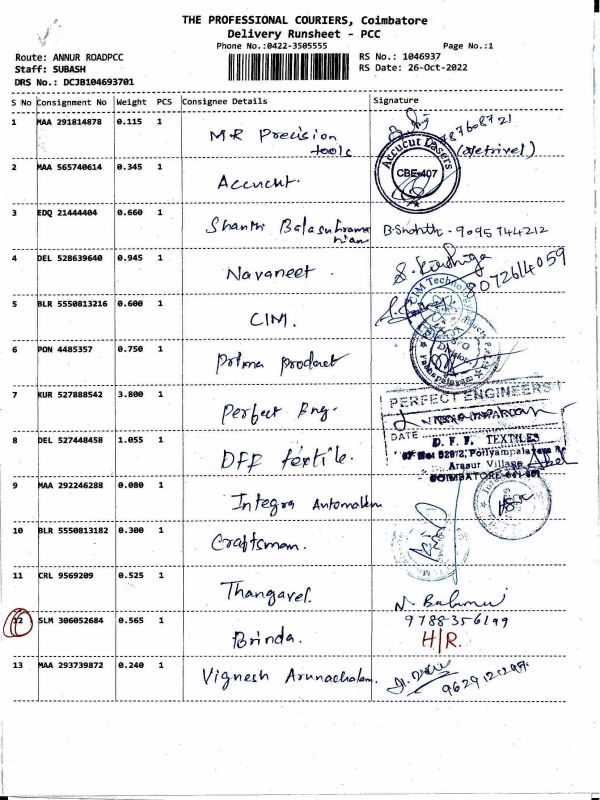 THE PROFESSIONAL COURIERS, Coimbatore
Delivery Runsheet - PCC
Phone No.:0422-3505555 Page No.:1
Route: ANNUR ROADPCC RS No.: 1046937
Staff: SUBASH RS Date: 26-Oct-2022
DRS No.: DCJB104693701
S No Consignment No Weight PCS Consignee Details Signature
1 MAA 291814878 0.115 1 M.R Precision tools
2 MAA 565740614 0.345 1 Accucut. Accucut Lasers CBE-407
3 EDQ 21444404 0.660 1 Shanthi Balasubramanian 9095744212
4 DEL 528639640 0.945 1 Navaneet 8072614059
5 BLR 5550813216 0.600 1 CIM.
6 PON 4485357 0.750 1 Prima product
7 KUR 527888542 3.800 1 Perfect Eng. PERFECT ENGINEERS
DATE
8 DEL 527448458 1.055 1 DFF textile. D. F. F. TEXTILES
Arasur Village
COIMBATORE
9 MAA 292246288 0.080 1 Integra Automation
10 BLR 5550813182 0.300 1 Craftsman.
11 CRL 9569209 0.525 1 Thangavel.
12 SLM 306052684 0.565 1 Brinda. 9788356199
H/R.
13 MAA 293739872 0.240 1 Vignesh Arunachalam.